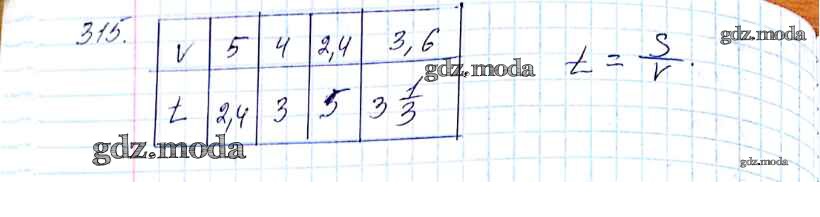 315.
v 5 4 2,4 3,6
t 2,4 3 5 3 1/3
t = S/v.
gdz.moda
gdz.moda
gdz.moda
gdz.moda